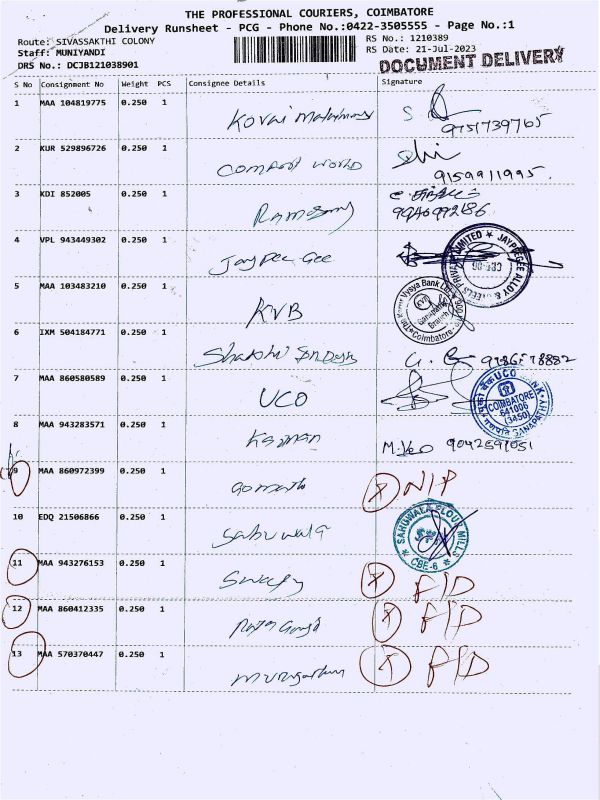 THE PROFESSIONAL COURIERS, COIMBATORE
Delivery Runsheet - PCG - Phone No.:0422-3505555 - Page No.:1
Route: SIVASSAKTHI COLONY
Staff: MUNIYANDI
DRS No.: DCJB121038901
RS No.: 1210389
RS Date: 21-Jul-2023
DOCUMENT DELIVERY
S No Consignment No Weight PCS Consignee Details Signature
1 MAA 104819775 0.250 1 Kovai
9751739765
2 KUR 529896726 0.250 1 Compact World
9159911995.
3 KDI 852005 0.250 1 Ramasamy
4 VPL 943449302 0.250 1 Jaypee Gee
JAYPEEGEE ALLOY & STEELS PRIVATE LIMITED
5 MAA 103483210 0.250 1 KVB
The Karur Vysya Bank Ltd
Ganapathy Branch
Coimbatore
6 IXM 504184771 0.250 1 Shakthi
7 MAA 860580589 0.250 1 UCO
UCO BANK
COIMBATORE
641006
(3450)
GANAPATHY
8 MAA 943283571 0.250 1 Kannan
9 MAA 860972399 0.250 1 Gomathi N/P
10 EDQ 21506866 0.250 1 Sabuwala
SABUWALA FLOUR MILLS
CBE-6
11 MAA 943276153 0.250 1 F/D
12 MAA 860412335 0.250 1 F/D
13 MAA 570370447 0.250 1 F/D